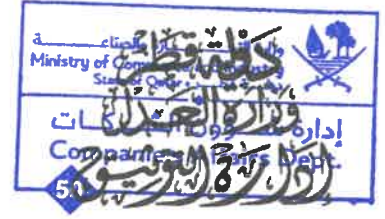 دولة قطر
Ministry of
State of Qatar
وزارة العدل
إدارة شؤون الشركات
Companies Affairs Dept.
إدارة التوثيق